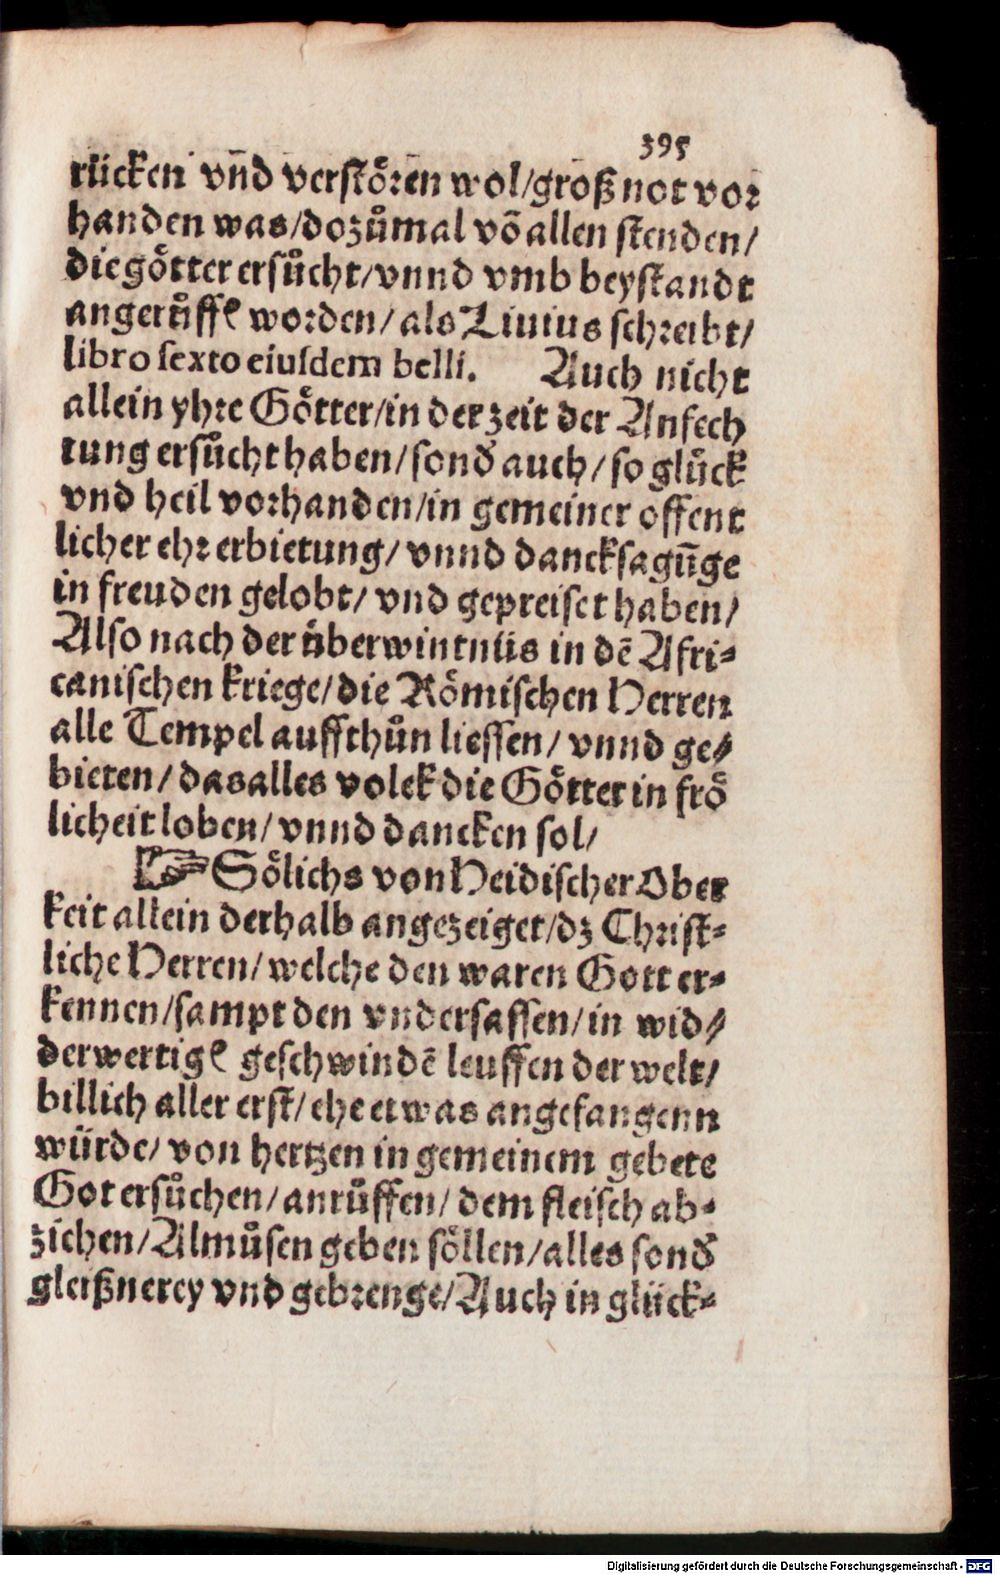 395
rücken vn̄d verstören wol/groß not vor
handen was/dozůmal võ allen stenden/
die götter ersůcht/vnnd vmb beystandt
angerůffẽ worden/ als Liuius schreibt/
libro sexto eiusdem belli. Auch nicht
allein yhre Götter/in der zeit der Anfech
tung ersůcht haben/sonđ auch/so glůck
vnd heil vorhanden/in gemeiner offent
licher ehr erbietung/ vnnd dancksagūge
in freuden gelobt/ vnd gepreiset haben/
Also nach der überwintnüs in dẽ Afri⸗
canischen kriege/die Römischen Herren
alle Tempel auffthůn liessen/ vnnd ge⸗
bieten/ das alles volck die Götter in frö
licheit loben/ vnnd dancken sol/
☞ Sölichs von Heidischer Ober
keit allein derhalb angezeiget/dz Christ⸗
liche Herren/ welche den waren Gott er⸗
kennen/sampt den vndersassen/in wid⸗
derwertigẽ geschwindẽ leuffen der welt/
billich aller erst/ ehe etwas angefangenn
würde/ von hertzen in gemeinem gebete
Got ersůchen/anrůffen/ dem fleisch ab⸗
zichen/Almůsen geben söllen/alles sonđ
gleißnerey vnd gebrenge/Auch in glück⸗
Digitalisierung gefördert durch die Deutsche Forschungsgemeinschaft - DFG